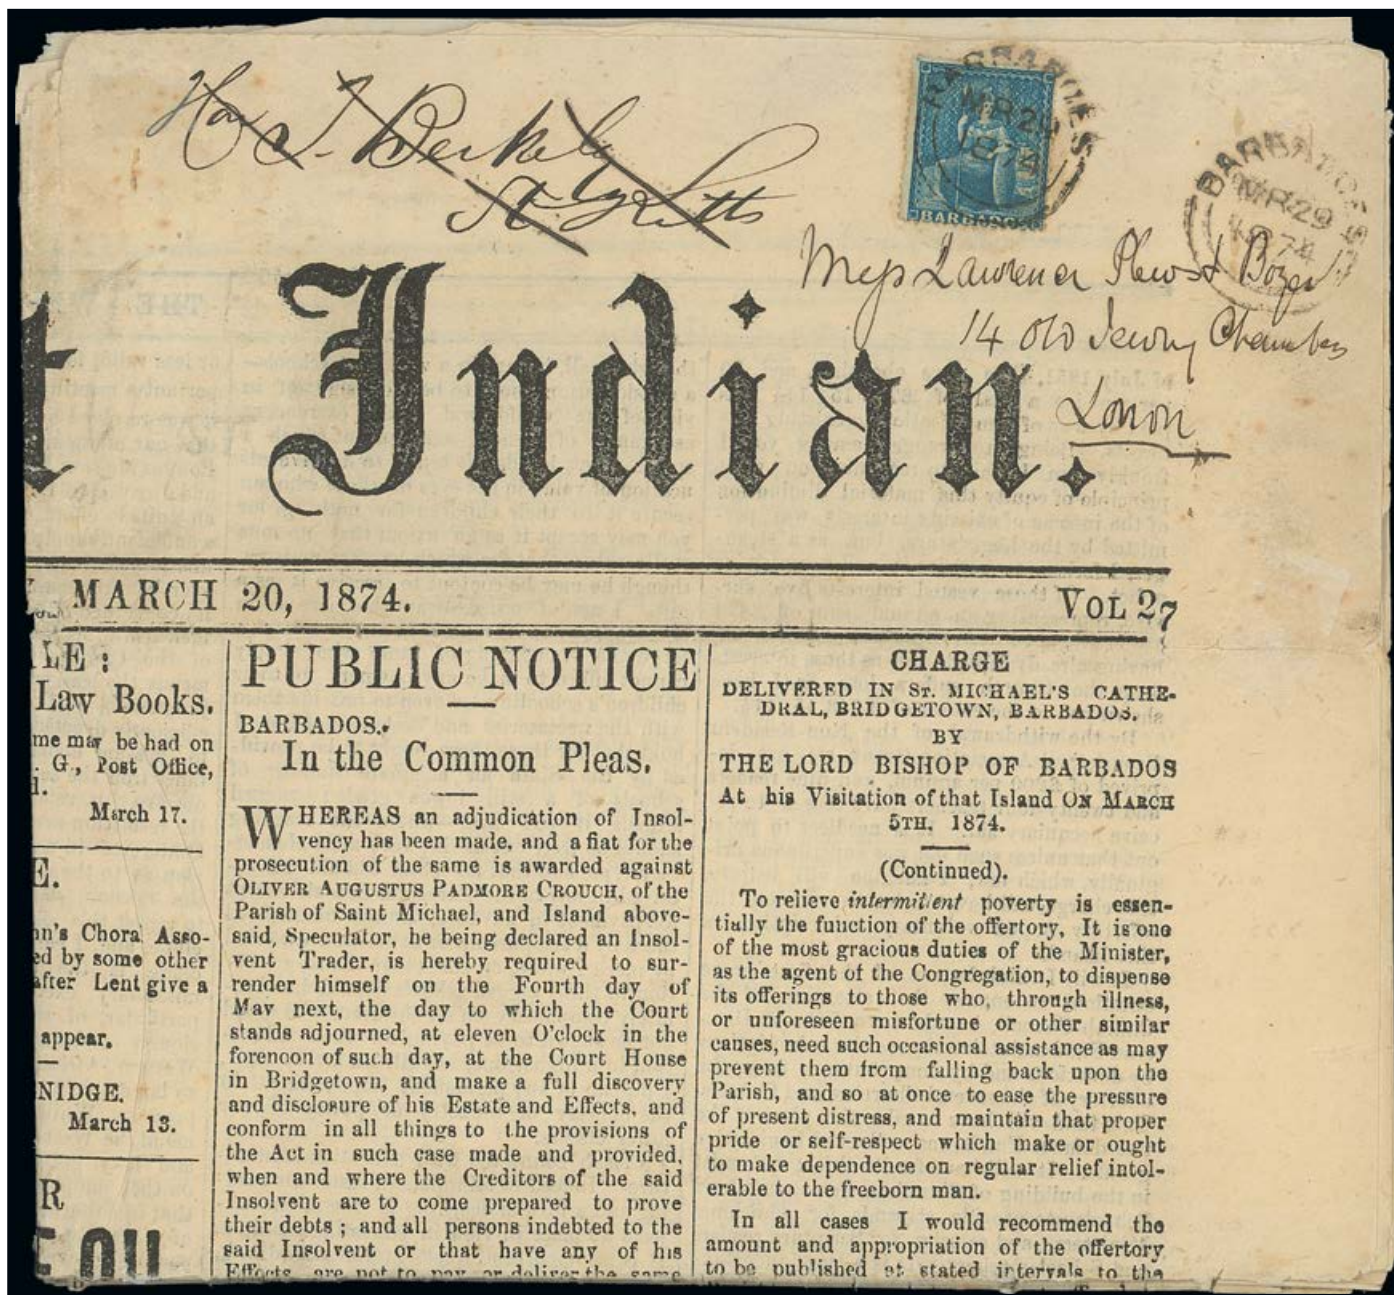 Hon T. Berkeley
St Kitts
BARBADOES
MR 20
1874
BARBADOS
BARBADOES
MR 29
1874
Mess Lawrence Plews & Boyer
14 Old Jewry Chambers
London
t Indian.
MARCH 20, 1874.
VOL 27
LE:
Law Books.
me may be had on
. G., Post Office,
d.
March 17.
E.
nn's Choral Asso-
ed by some other
after Lent give a
appear.
NIDGE.
March 13.
R
PUBLIC NOTICE
BARBADOS.
In the Common Pleas.
WHEREAS an adjudication of Insol-
vency has been made, and a fiat for the
prosecution of the same is awarded against
OLIVER AUGUSTUS PADMORE CROUCH, of the
Parish of Saint Michael, and Island above-
said, Speculator, he being declared an Insol-
vent Trader, is hereby required to sur-
render himself on the Fourth day of
May next, the day to which the Court
stands adjourned, at eleven O'clock in the
forenoon of such day, at the Court House
in Bridgetown, and make a full discovery
and disclosure of his Estate and Effects, and
conform in all things to the provisions of
the Act in such case made and provided,
when and where the Creditors of the said
Insolvent are to come prepared to prove
their debts ; and all persons indebted to the
said Insolvent or that have any of his
Effects are not to pay or deliver the same
CHARGE
DELIVERED IN ST. MICHAEL'S CATHE-
DRAL, BRIDGETOWN, BARBADOS.
BY
THE LORD BISHOP OF BARBADOS
At his Visitation of that Island ON MARCH
5TH, 1874.
(Continued).
To relieve intermittent poverty is essen-
tially the function of the offertory, It is one
of the most gracious duties of the Minister,
as the agent of the Congregation, to dispense
its offerings to those who, through illness,
or unforeseen misfortune or other similar
causes, need such occasional assistance as may
prevent them from falling back upon the
Parish, and so at once to ease the pressure
of present distress, and maintain that proper
pride or self-respect which make or ought
to make dependence on regular relief intol-
erable to the freeborn man.
In all cases I would recommend the
amount and appropriation of the offertory
to be published at stated intervals to the